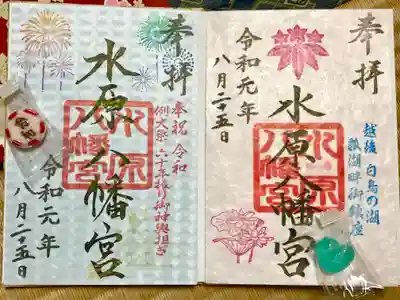 奉拝
越後 白鳥の湖
瓢湖畔御鎮座
水原八幡宮
水原八幡宮
令和元年
八月二十五日
奉拝
奉祝 令和
水原八幡宮
水原八幡宮
令和元年
八月二十五日
令和